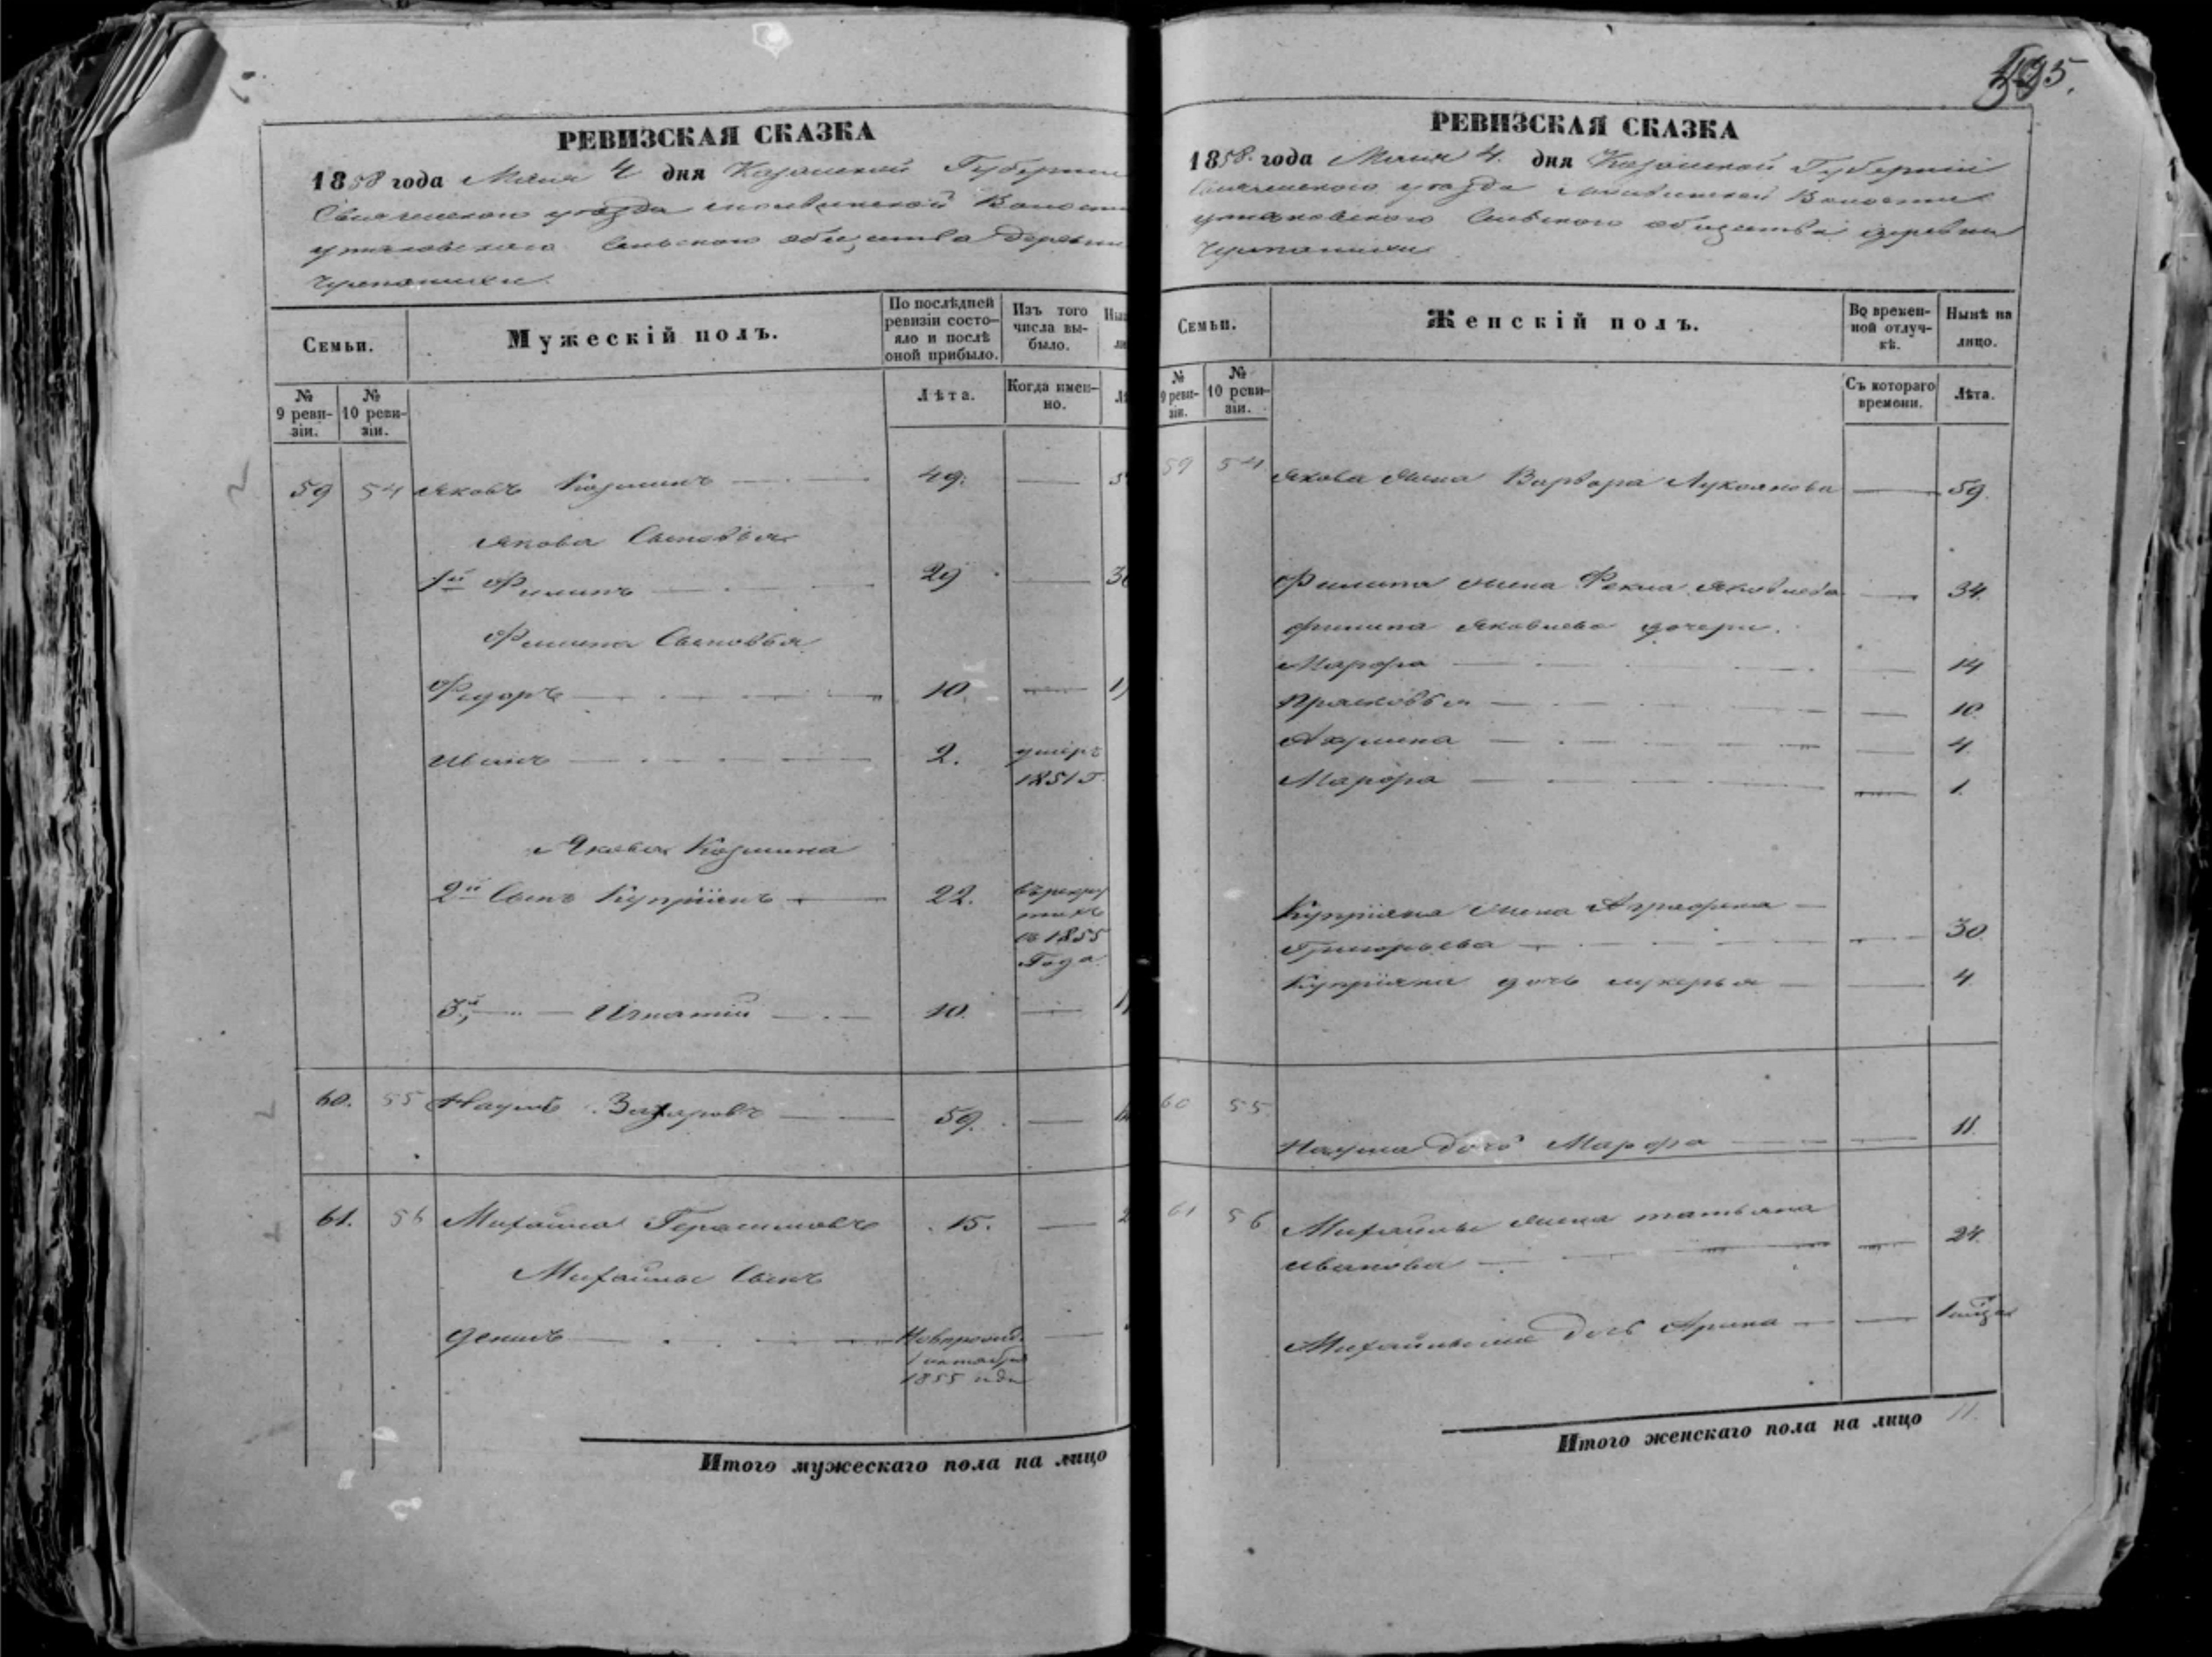 595.
РЕВИЗСКАЯ СКАЗКА
1858 года Мая 4 дня Казанской Губернии
Свияжского уезда Волости
Сельского общества деревни
РЕВИЗСКАЯ СКАЗКА
1858 года Мая 4 дня Казанской Губернии
Свияжского уезда Волости
Сельского общества деревни
Семьи.
Мужескій полъ.
По послѣдней ревизіи состояло и послѣ оной прибыло.
Изъ того числа выбыло.
№ 9 ревизіи.
№ 10 ревизіи.
Лѣта.
Когда именно.
59 54 Яковъ Козминъ 49.
Якова Сыновья
1й Филипъ 29
Филипа Сыновья
Федоръ 10.
Иванъ 2. умеръ
1851 г.
Якова Козмина
2й Сынъ Купріянъ 22. въ рекру
тахъ
съ 1855
Года
3й Игнатій 10.
60. 55 Наумъ Захаровъ 59.
61. 56 Михайла Герасимовъ 15.
Михайлы Сынъ
Денисъ Новорожд.
1 октября
1855 года
Итого мужескаго пола на лицо
Семьи.
Женскій полъ.
Во временной отлучкѣ.
Нынѣ на лицо.
№ 9 ревизіи.
№ 10 ревизіи.
Съ котораго времени.
Лѣта.
59 54 Якова жена Варвара Лукоянова 59.
Филипа жена Фекла Яковлева 34.
Филипа Яковлева дочери.
Марфа 14
Прасковья 10.
Акулина 4.
Марфа 1.
Купріяна жена Аграфена
Григорьева 30.
Купріяна дочь Лукерья 4
60 55
Наума дочь Марфа 11.
61 56 Михайлы жена Татьяна
Иванова 24.
Михайлы дочь Арина 1
Итого женскаго пола на лицо 11.